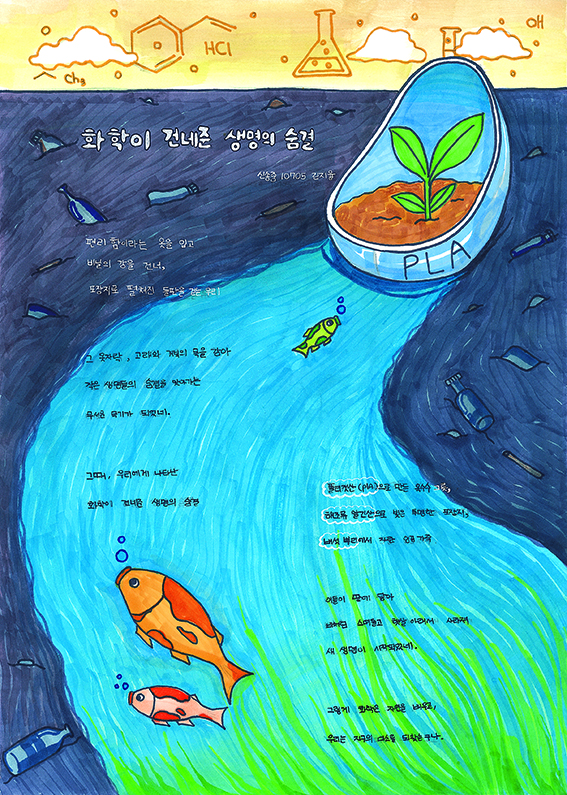 HCl
CH₃
애
화학이 건네준 생명의 숨결
10705
편리함이라는 옷을 입고
비닐의 강을 건너,
포장지로 펼쳐진 들판을 걷는 우리
PLA
그 옷자락, 고래와 거북의 목을 감아
작은 생명들의 숨결을 앗아가는
무서운 무기가 되었네.
그때, 우리에게 나타난
화학이 건네준 생명의 숨결
폴리젖산(PLA)으로 만든 옥수수
해조류 알긴산으로 빚은 투명한 포장지,
버섯 뿌리에서 자란 인공가죽
이들이 땅에 닿아
스며들고 햇살 아래서 사라져
새 생명이 시작되었네.
그렇게 화학은 자연을 배우고,
우리는 지구의 미소를 되찾는구나.